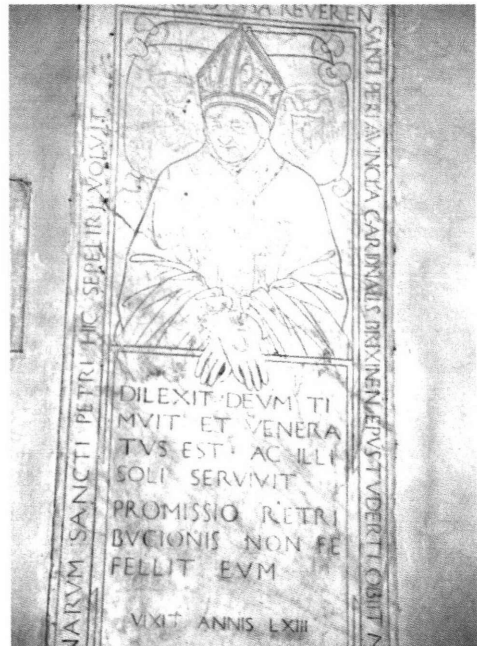 CVSA REVEREN
SANTI PETRI AVINCLA CARDINALIS BRIXINEN EPVS TVDERTI OBIIT
NARVM SANCTI PETRI HIC SEPELIRI VOLVIT
DILEXIT DEVM TI
MVIT ET VENERA
TVS EST AC ILLI
SOLI SERVIVIT
PROMISSIO RETRI
BVCIONIS NON FE
FELLIT EVM
VIXIT ANNIS LXIII